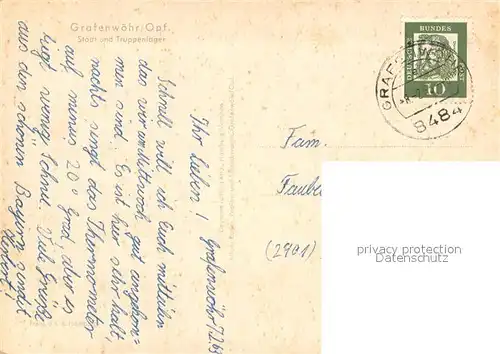 Grafenwöhr/Opf.
Stadt und Truppenlager
Ihr Lieben! Grafenwöhr, 7.2.63
Schnell will ich Euch mitteilen
das wir am Mittwoch gut angekom-
men sind. Es ist hier sehr kalt,
nachts singt das Thermometer
auf minus 20° Grad, aber es
liegt wenig Schnee. Viele Grüße
aus dem schönen Bayern sendet
Herbert!
DEUTSCHE
BUNDES
POST
10
8484
Fam.
Faube
(2901)
privacy protection